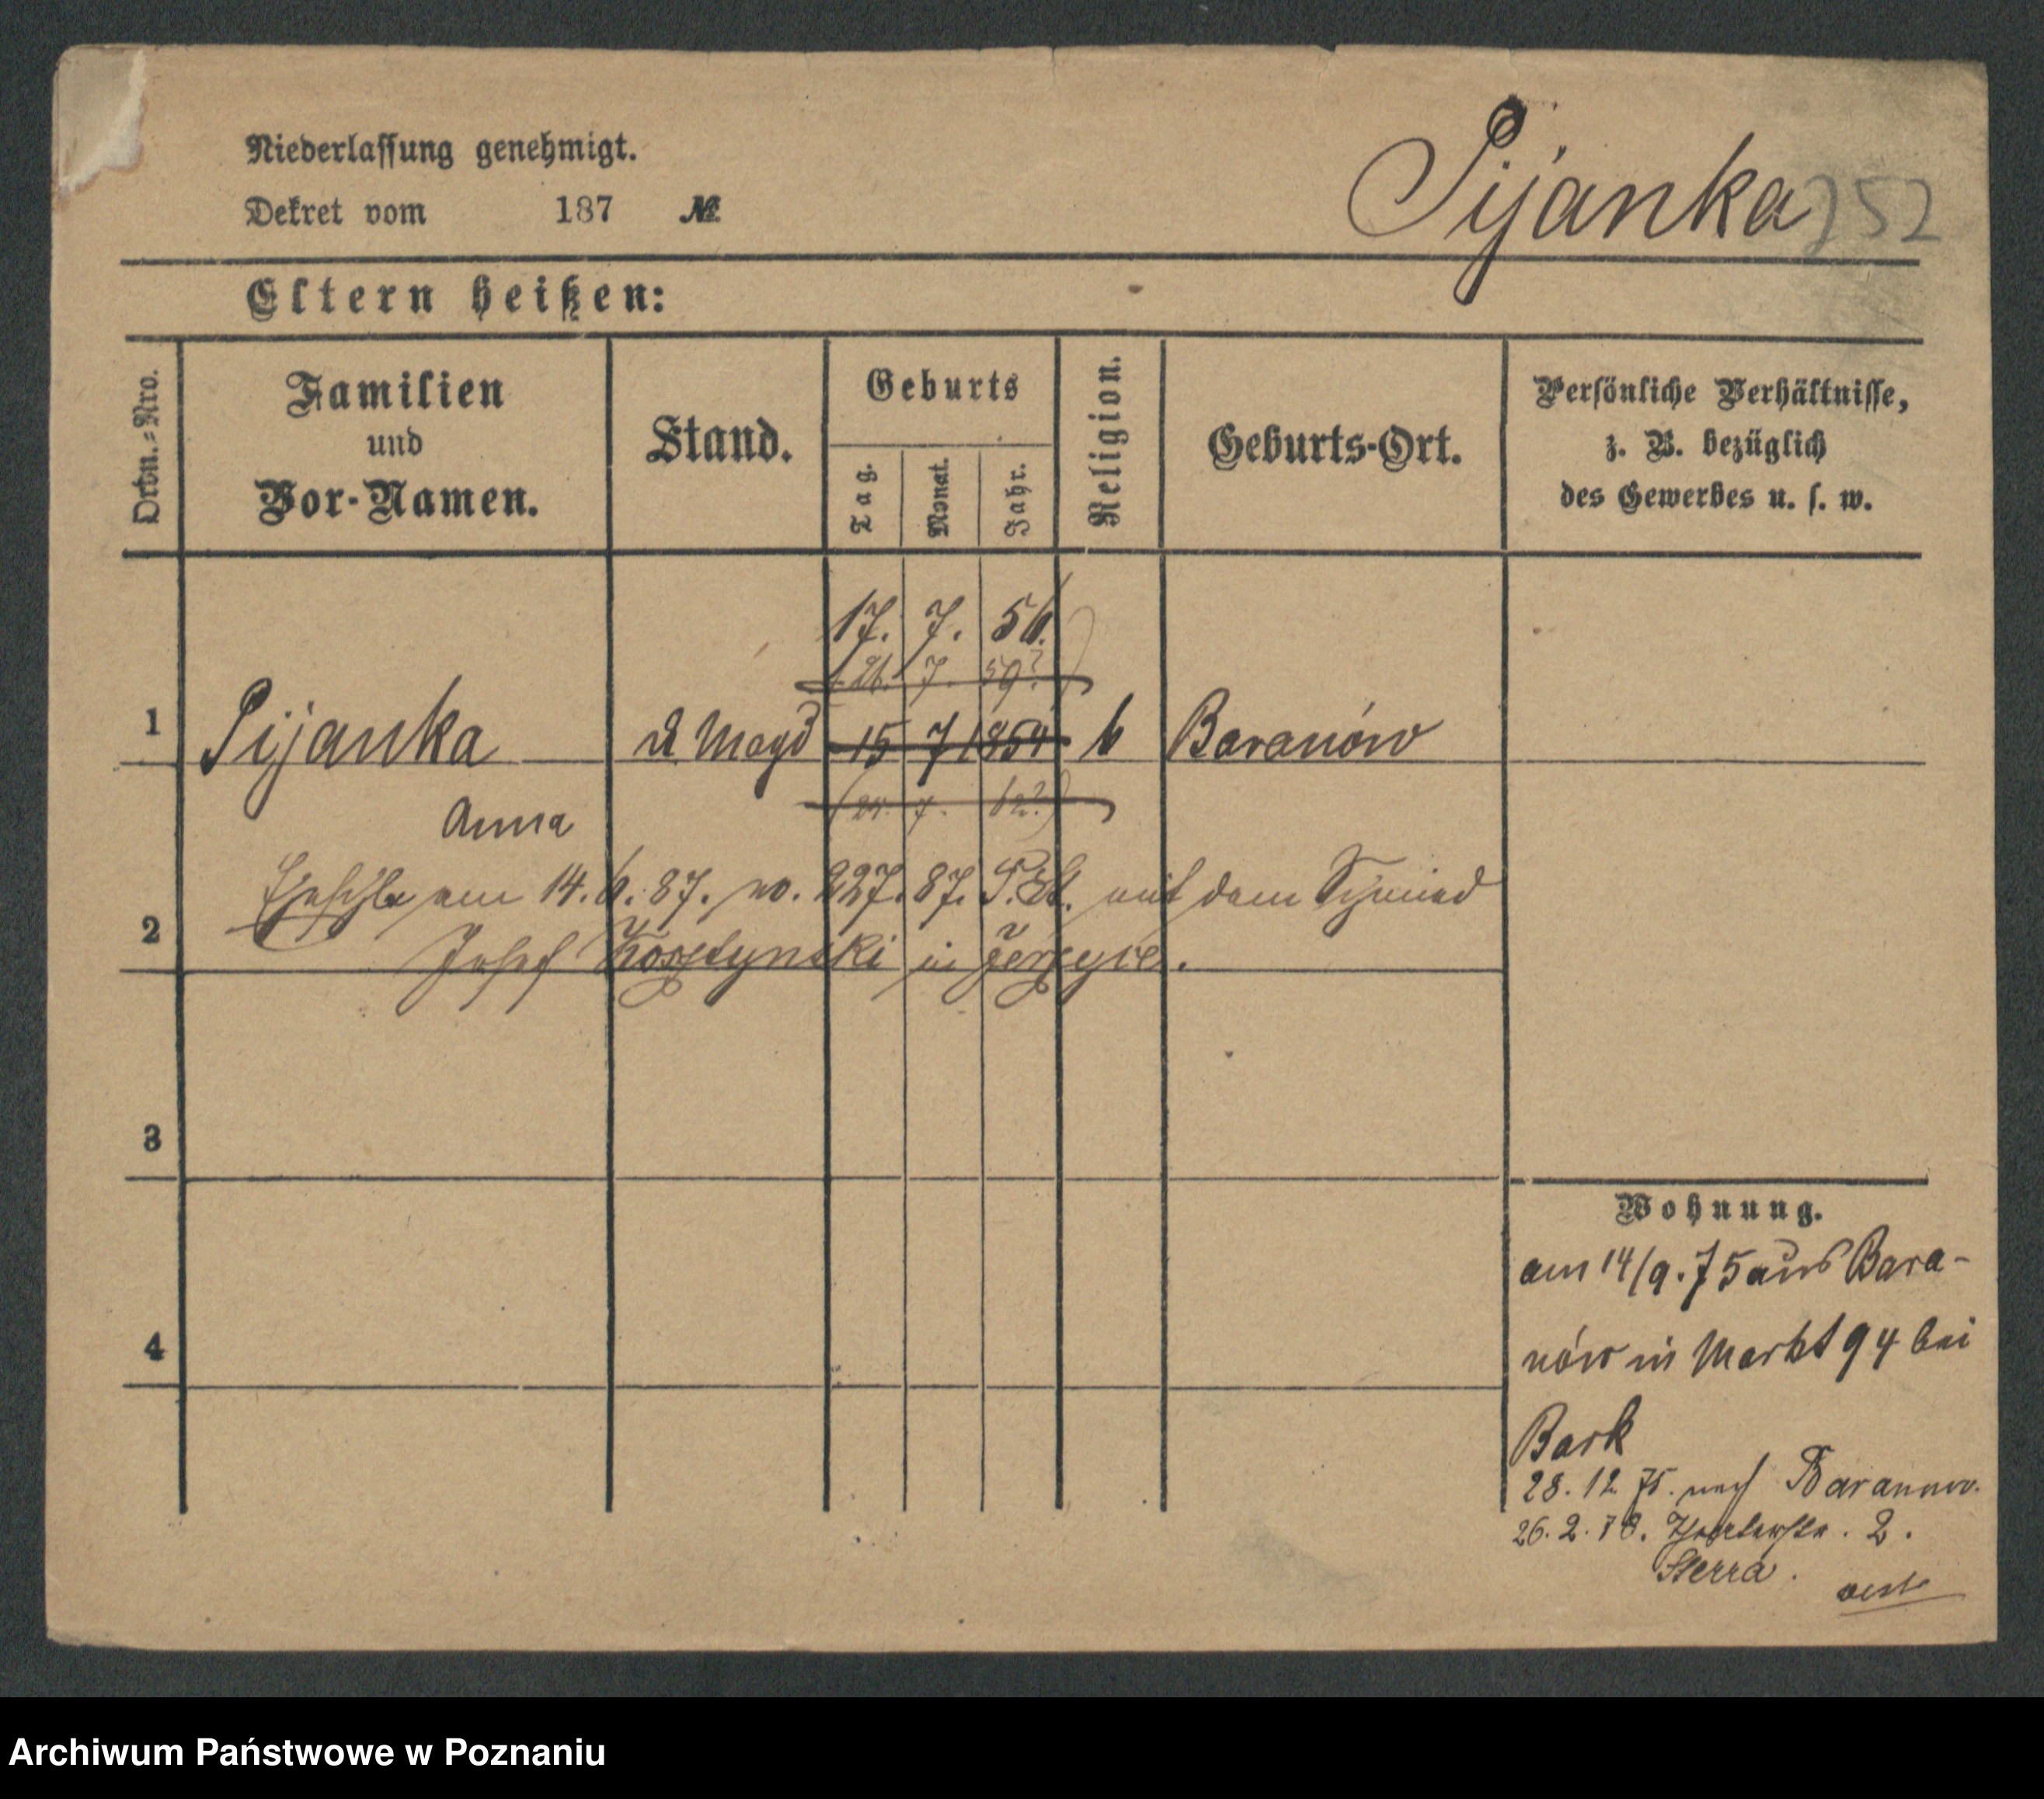 Niederlassung genehmigt.
Dekret vom 187 №
Pijanka
252
Eltern heißen:
Ordn.-Nro.
Familien
und
Vor-Namen.
Stand.
Geburts
Tag.
Monat.
Jahr.
Religion.
Geburts-Ort.
Persönliche Verhältnisse,
z. B. bezüglich
des Gewerbes u. s. w.
17. 7. 56.
7. 59?
1 Pijanka Magd 15 7 1854 k Baranów
7. 62?)
Anna
am 14. 6. 87. no. 227. 87. mit dem
2
Josef in
3
4
Wohnung.
am 14/9. 75 aus Bara-
nów in Markt 94 bei
Bark
28. 12 75. nach Baranow.
26. 2. 78. 2.
Sterra.
Archiwum Państwowe w Poznaniu